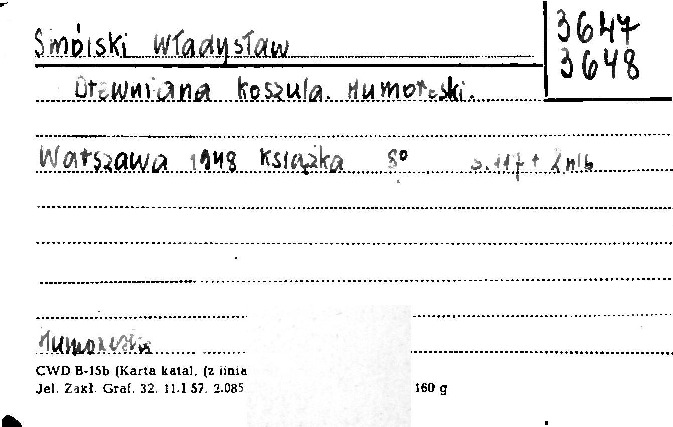 3647
3648
Smólski Władysław
Drewniana koszula. Humoreski.
Warszawa 1948 Książka 8° s. 117 + 2 nlb
Humoreska
CWD B-15b (Karta katal. (z linia
Jel. Zakł. Graf. 32. 11.I 57. 2.085 160 g